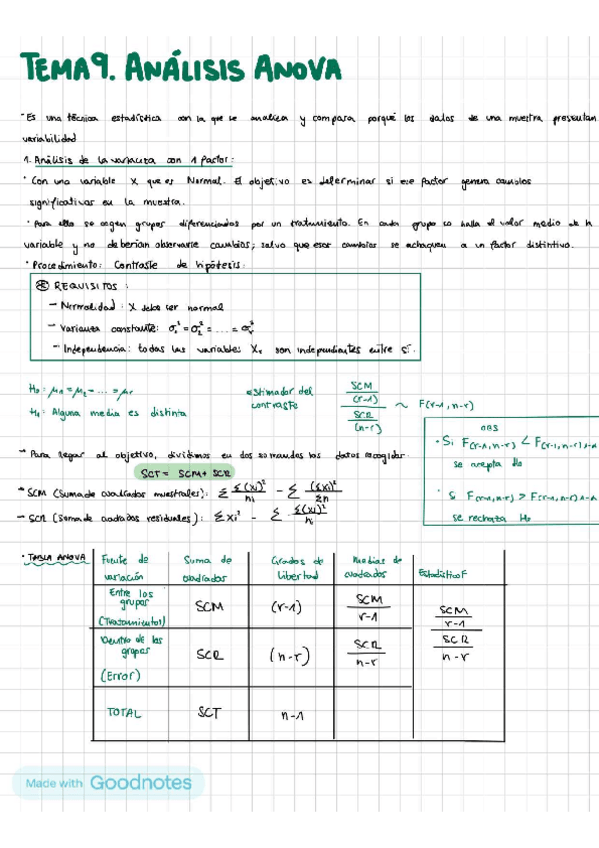 TEMA 9. ANÁLISIS ANOVA
· Es una técnica estadística con la que se analiza y compara porqué los datos de una muestra presentan
variabilidad
1. Análisis de la varianza con 1 factor:
· Con una variable X que es Normal. El objetivo es determinar si ese factor genera cambios
significativos en la muestra.
· Para ello se cogen grupos diferenciados por un tratamiento. En cada grupo se halla el valor medio de la
variable y no deberían observarse cambios; salvo que esos cambios se achaquen a un factor distintivo.
· Procedimiento: Contraste de hipótesis:
REQUISITOS:
- Normalidad: X debe ser normal
- Varianza constante: σ₁² = σ₂² = ... = σᵣ²
- Independencia: todas las variables Xᵢ son independientes entre sí.
H₀ = μ₁ = μ₂ = ... = μr
H₁: Alguna media es distinta
estimador del contraste
SCM/(r-1) / SCR/(n-r) ~ F(r-1, n-r)
obs
· Si F(r-1,n-r) < F(r-1,n-r)1-α
se acepta H₀
· Si F(r-1,n-r) > F(r-1,n-r)1-α
se rechaza H₀
- Para llegar al objetivo, dividimos en dos sumandos los datos recogidos:
SCT = SCM + SCR
- SCM (Suma de cuadrados muestrales): Σ Σ(xi)²/ni - Σ (Σxi)²/Σn
- SCR (Suma de cuadrados residuales): Σxi² - Σ Σ(xi)²/ni
· TABLA ANOVA
Fuente de variación | Suma de cuadrados | Grados de libertad | Medias de cuadrados | Estadístico F
Entre los grupos (Tratamiento) | SCM | (r-1) | SCM/r-1 | SCM/r-1 / SCR/n-r
Dentro de los grupos (Error) | SCR | (n-r) | SCR/n-r
TOTAL | SCT | n-1
Made with Goodnotes